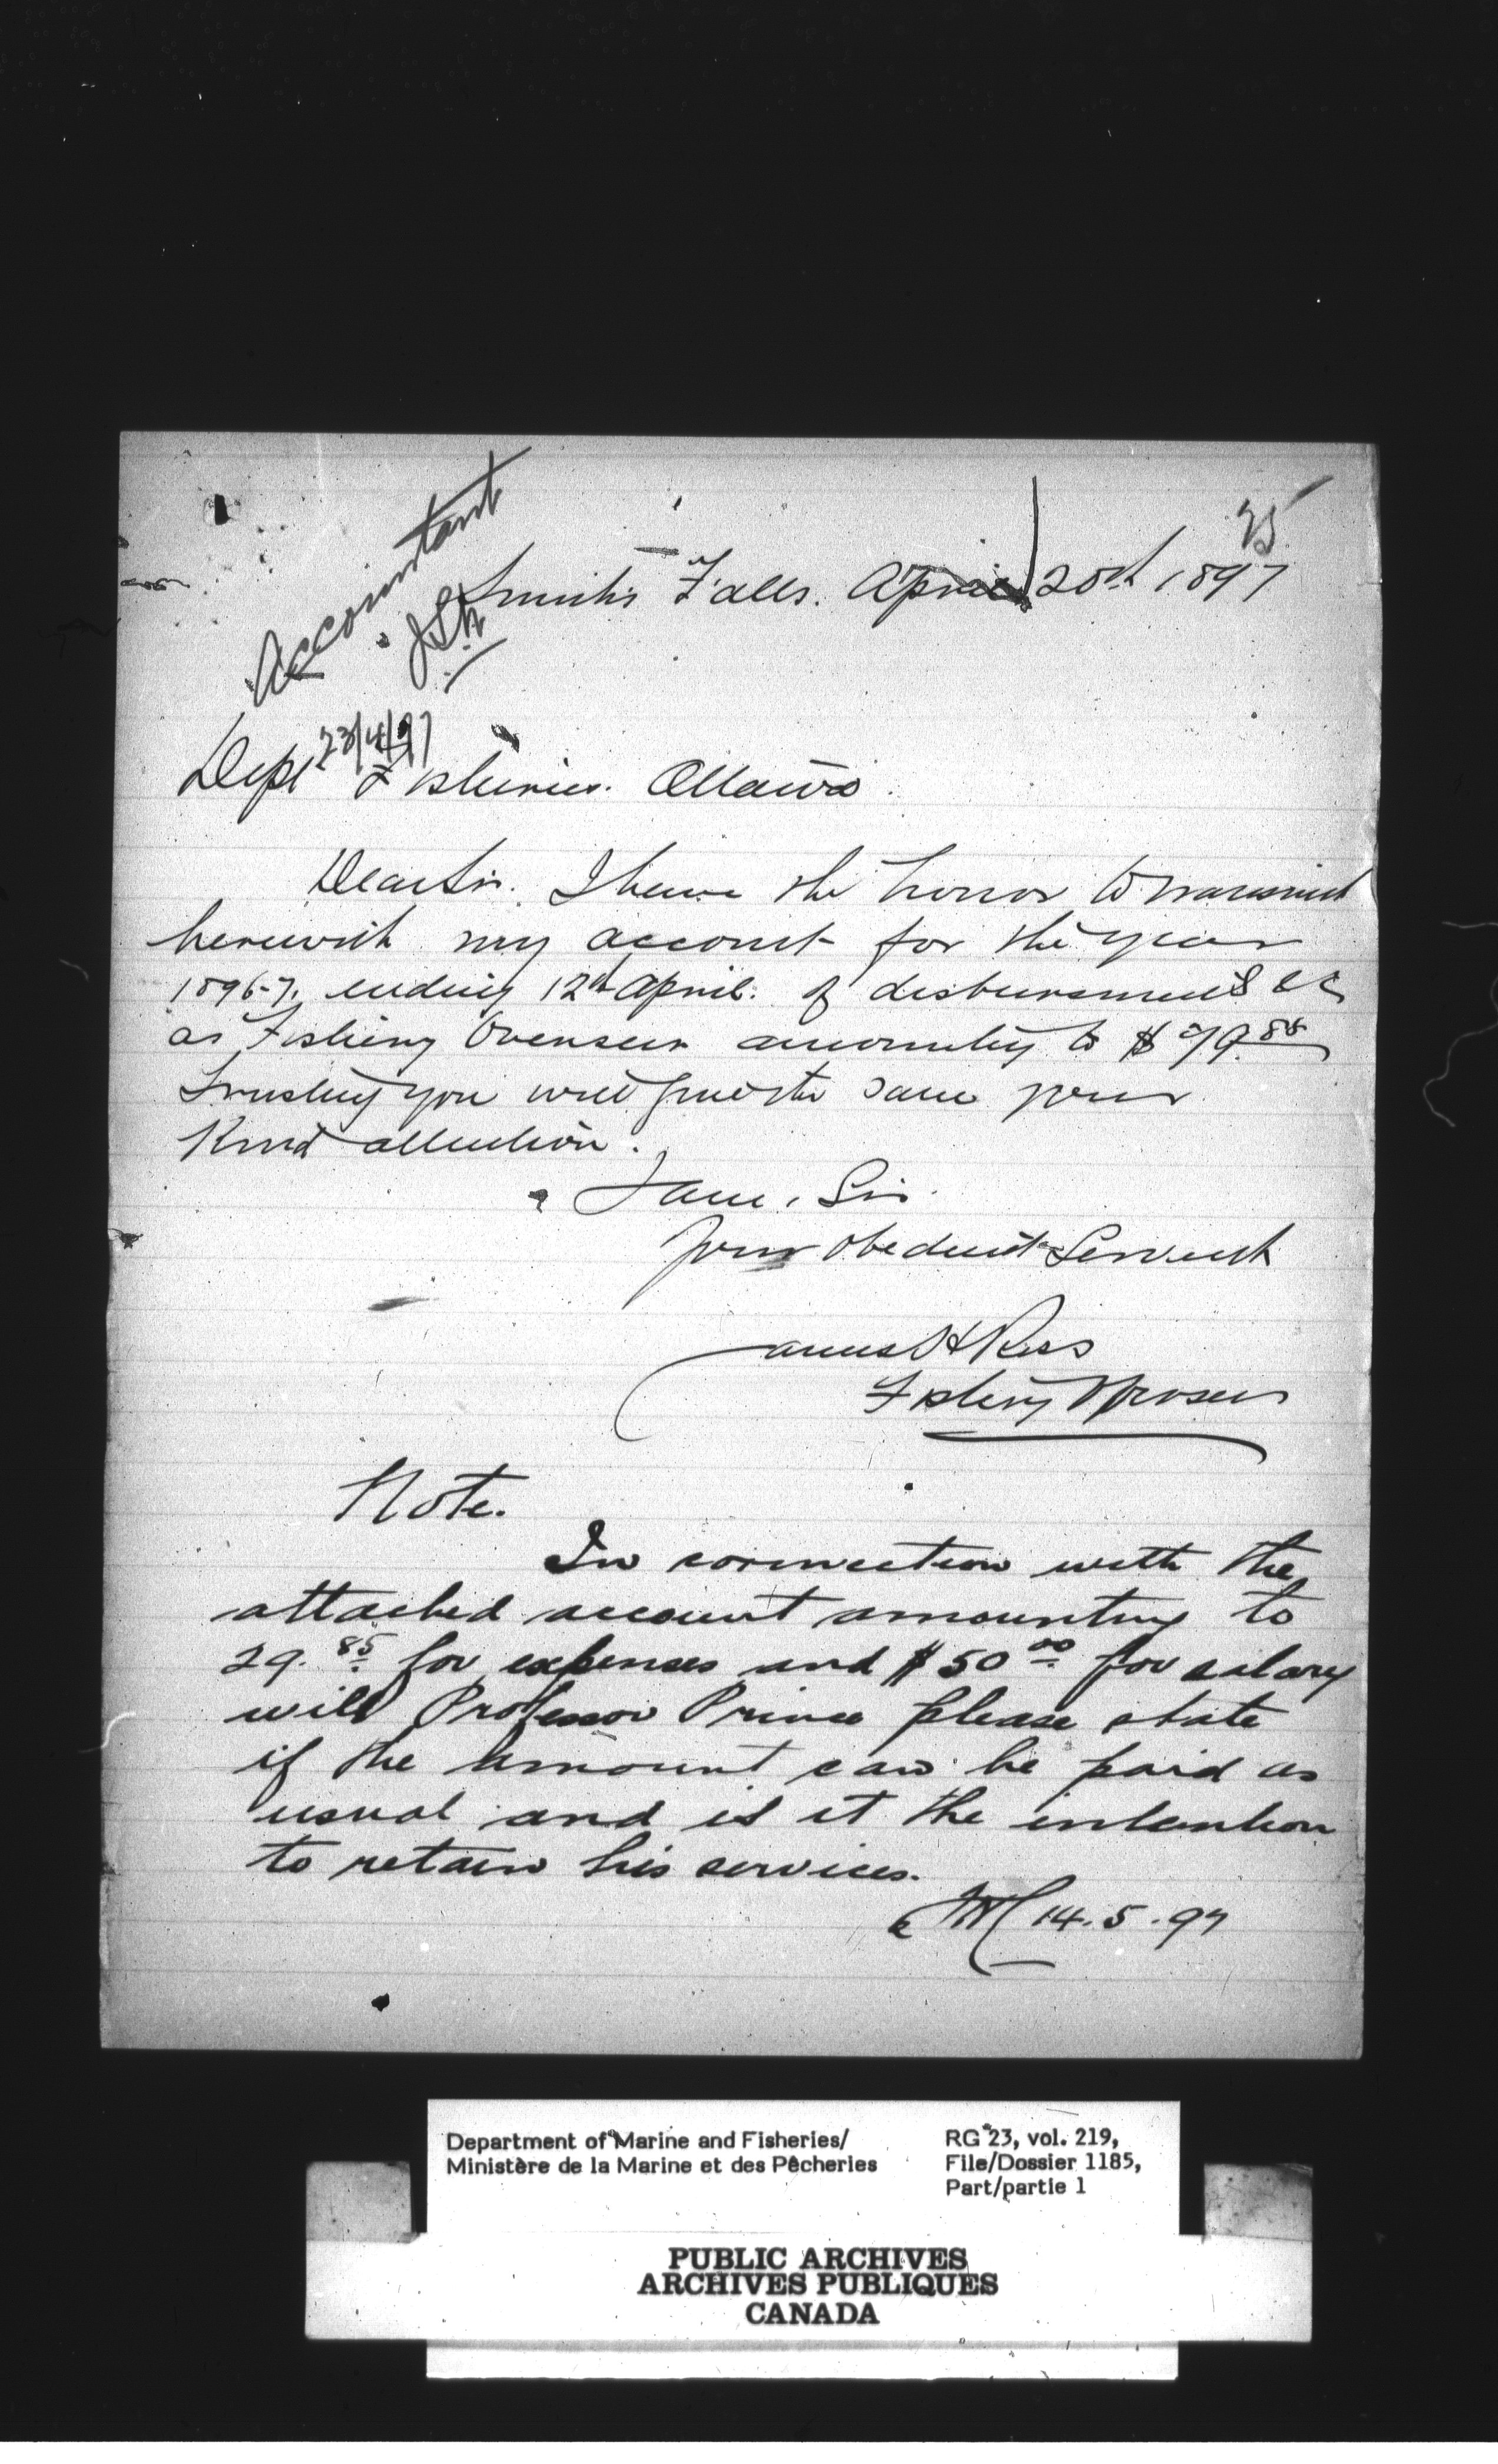 25
Accountant
Smiths Falls. April 20th 1897
23/4/97
Dept Fisheries. Ottawa
Dear Sir. I have the honor to transmit
herewith my account for the year
1896-7, ending 12th April. of disbursments &c
as Fishery Overseer amounting to $79.85
Trusting you will give the same your
Kind attention.
I am, Sir.
Your obedient Servant
James H Ross
Fishery Overseer
Note.
In connection with the
attached account amounting to
29.85 for expenses and $50.00 for salary
will Professor Prince please state
if the amount can be paid as
usual and is it the intention
to retain his services.
14.5.97
Department of Marine and Fisheries/
Ministère de la Marine et des Pêcheries
RG 23, vol. 219,
File/Dossier 1185,
Part/partie 1
PUBLIC ARCHIVES
ARCHIVES PUBLIQUES
CANADA